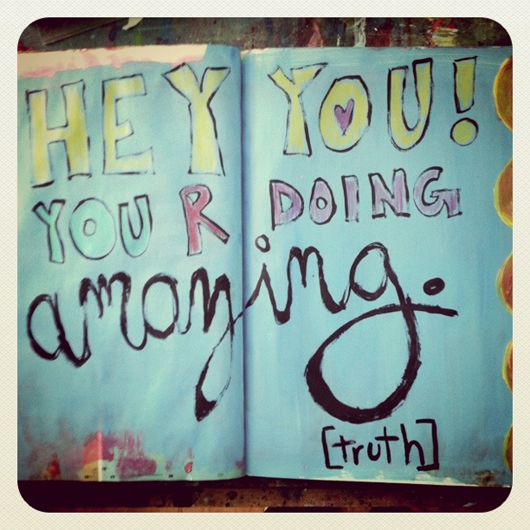 HEY YOU!
YOU R DOING
amazing.
[truth]